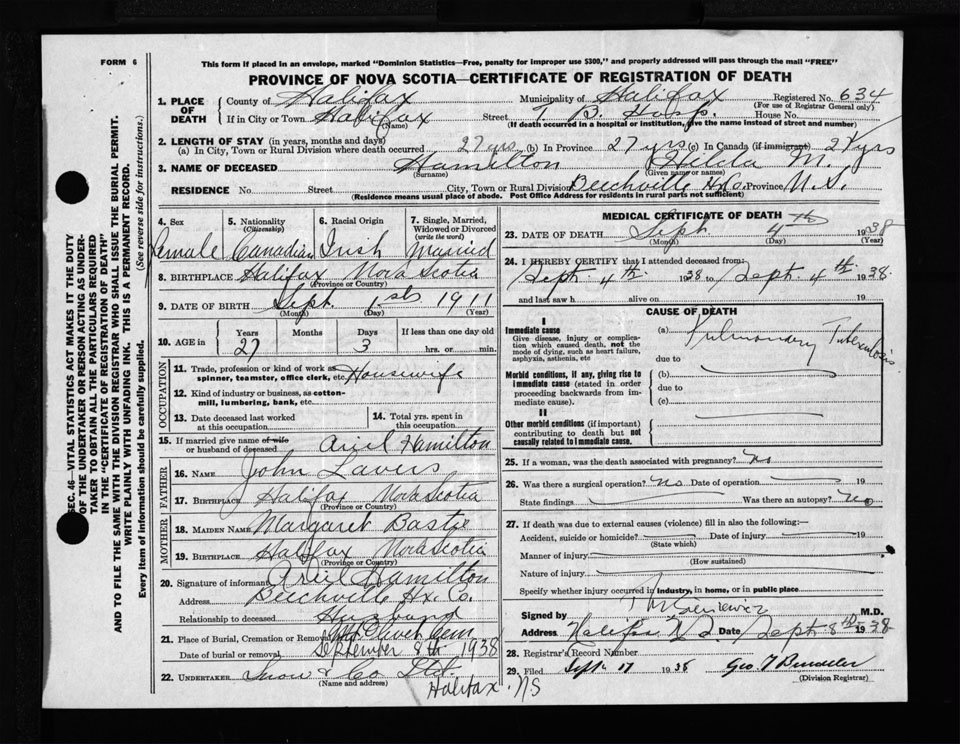 FORM 6
This form if placed in an envelope, marked "Dominion Statistics—Free, penalty for improper use $300," and properly addressed will pass through the mail "FREE"
PROVINCE OF NOVA SCOTIA—CERTIFICATE OF REGISTRATION OF DEATH
1. PLACE OF DEATH County of Halifax Municipality of Halifax Registered No. 634
(For use of Registrar General only)
If in City or Town Halifax Street T. B. Hosp. House No.
(Name) (If death occurred in a hospital or institution, give the name instead of street and number)
2. LENGTH OF STAY (in years, months and days)
(a) In City, Town or Rural Division where death occurred 27 yrs (b) In Province 27 yrs (c) In Canada (if immigrant) 27 yrs
3. NAME OF DECEASED Hamilton Hilda M.
(Surname) (Given name or names)
RESIDENCE No. Street City, Town or Rural Division Beechville Hx Co. Province N.S.
(Residence means usual place of abode. Post Office Address for residents in rural parts not sufficient)
4. Sex 5. Nationality (Citizenship) 6. Racial Origin 7. Single, Married, Widowed or Divorced (write the word)
Female Canadian Irish Married
8. BIRTHPLACE Halifax Nova Scotia
(Province or Country)
9. DATE OF BIRTH Sept. 1st 1911
(Month) (Day) (Year)
10. AGE in Years Months Days If less than one day
27 3 hrs. or min.
OCCUPATION
11. Trade, profession or kind of work as spinner, teamster, office clerk, etc. Housewife
12. Kind of industry or business, as cotton-mill, lumbering, bank, etc.
13. Date deceased last worked at this occupation
14. Total yrs. spent in this occupation
15. If married give name of wife or husband of deceased Ariel Hamilton
FATHER
16. NAME John Lavers
17. BIRTHPLACE Halifax Nova Scotia
(Province or Country)
MOTHER
18. MAIDEN NAME Margaret
19. BIRTHPLACE Halifax Nova Scotia
(Province or Country)
20. Signature of informant Ariel Hamilton
Address Beechville Hx. Co.
Relationship to deceased Husband
21. Place of Burial, Cremation or Removal Mt Olivet Cem
Date of burial or removal September 8th 1938
22. UNDERTAKER Snow & Co Ltd.
(Name and address)
Halifax. NS
MEDICAL CERTIFICATE OF DEATH
23. DATE OF DEATH Sept. 4th 1938
(Month) (Day) (Year)
24. I HEREBY CERTIFY that I attended deceased from:
Sept. 4th 1938 to Sept. 4th 1938.
and last saw h alive on 19
CAUSE OF DEATH
I
Immediate cause
Give disease, injury or complication which caused death, not the mode of dying, such as heart failure, asphyxia, asthenia, etc
(a) Pulmonary Tuberculosis
due to
Morbid conditions, if any, giving rise to immediate cause (stated in order proceeding backwards from immediate cause).
(b)
due to
(c)
II
Other morbid conditions (if important) contributing to death but not causally related to immediate cause.
25. If a woman, was the death associated with pregnancy? No
26. Was there a surgical operation? No Date of operation 19
State findings Was there an autopsy? No
27. If death was due to external causes (violence) fill in also the following:—
Accident, suicide or homicide? Date of injury 19
(State which)
Manner of injury
(How sustained)
Nature of injury
Specify whether injury occurred in industry, in home, or in public place
Signed by M.D.
Address Halifax N.S. Date Sept 8th 1938
28. Registrar's Record Number
29. Filed Sept. 17 1938 Geo. T
(Division Registrar)
SEC. 46—VITAL STATISTICS ACT MAKES IT THE DUTY
OF THE UNDERTAKER OR PERSON ACTING AS UNDER-
TAKER TO OBTAIN ALL THE PARTICULARS REQUIRED
IN THE "CERTIFICATE OF REGISTRATION OF DEATH"
AND TO FILE THE SAME WITH THE DIVISION REGISTRAR WHO SHALL ISSUE THE BURIAL PERMIT.
WRITE PLAINLY WITH UNFADING INK. THIS IS A PERMANENT RECORD.
Every item of information should be carefully supplied. (See reverse side for instructions.)